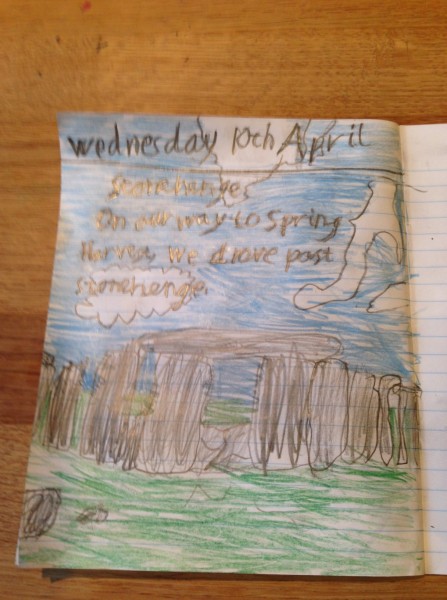 wednesday 10th April
Stonehenge
On our way to Spring
Harvest we drove past
stonehenge.